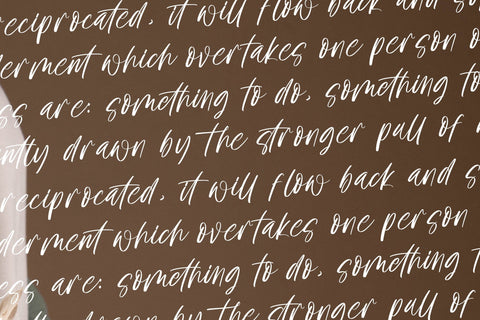 reciprocated, it will flow back and so
derment which overtakes one person o
ess are: something to do, something to
ntly drawn by the stronger pull of
reciprocated, it will flow back and s
derment which overtakes one person
ess are: something to do, something t
drawn by the stronger pull of